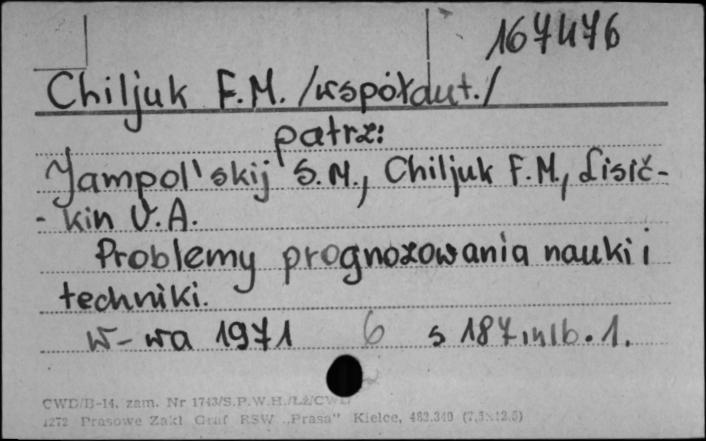 167476
Chiljuk F.M. /współaut./
patrz:
Jampol'skij S.M., Chiljuk F.M., Lisič-
- kin V.A.
Problemy prognozowania nauki i
techniki.
W-wa 1971 6 s 187, nlb. 1.
CWD/B-14, zam. Nr 1743/S.P.W.H./Łż/CWD
1272 Prasowe Zakł Graf RSW „Prasa" Kielce, 483.340 (7,5x12,5)